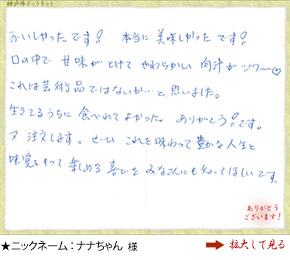 神戸牛ドットネット
おいしかったです! 本当に美味しかったです!
口の中で 甘味がとけて やわらかい 肉汁がジワ〜♡
これは芸術品ではないか…と思いました。
生きてるうちに食べれてよかった。ありがとう!です。
又 注文します。ぜひ これを味わって豊かな人生と
味覚をもって 楽しめる 喜びを みなさんにも知ってほしいです。
ありがとう
ございます!
★ニックネーム:ナナちゃん 様
拡大して見る